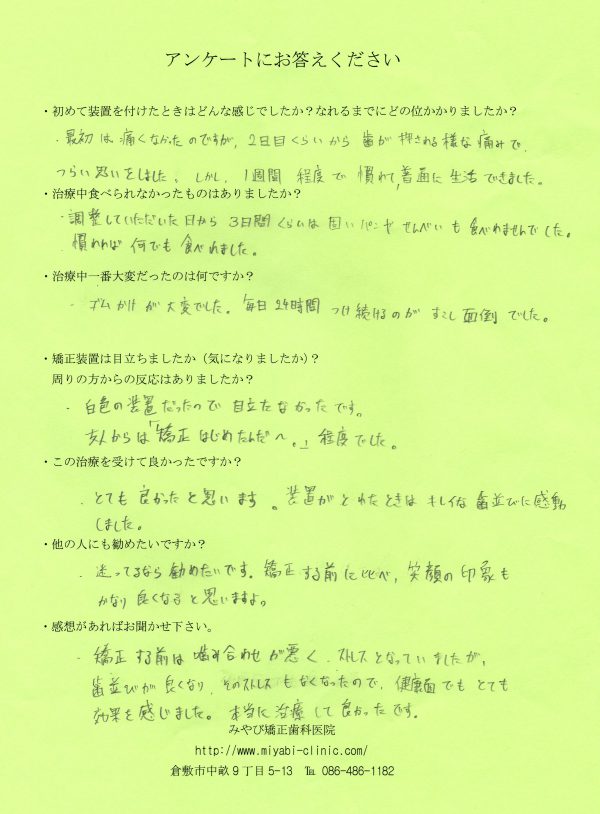 アンケートにお答えください
・初めて装置を付けたときはどんな感じでしたか？なれるまでにどの位かかりましたか？
・最初は痛くなかったのですが、2日目くらいから歯が押される様な痛みで、
つらい思いをしました。しかし、1週間程度で慣れて、普通に生活できました。
・治療中食べられなかったものはありましたか？
・調整していただいた日から3日間くらいは固いパンやせんべいも食べれませんでした。
慣れれば何でも食べれました。
・治療中一番大変だったのは何ですか？
・ゴムかけが大変でした。毎日24時間つけ続けるのがすこし面倒でした。
・矯正装置は目立ちましたか（気になりましたか）？
周りの方からの反応はありましたか？
・白色の装置だったので目立たなかったです。
友人からは「矯正はじめたんだへ。」程度でした。
・この治療を受けて良かったですか？
・とても良かったと思います。装置がとれたときはキレイな歯並びに感動
しました。
・他の人にも勧めたいですか？
・迷ってるなら勧めたいです。矯正する前に比べ、笑顔の印象も
かなり良くなると思いますよ。
・感想があればお聞かせ下さい。
・矯正する前は噛み合わせが悪く、ストレスとなっていましたが、
歯並びが良くなり、そのストレスもなくなったので、健康面でもとても
効果を感じました。本当に治療して良かったです。
みやび矯正歯科医院
http://www.miyabi-clinic.com/
倉敷市中畝9丁目5-13 ℡ 086-486-1182